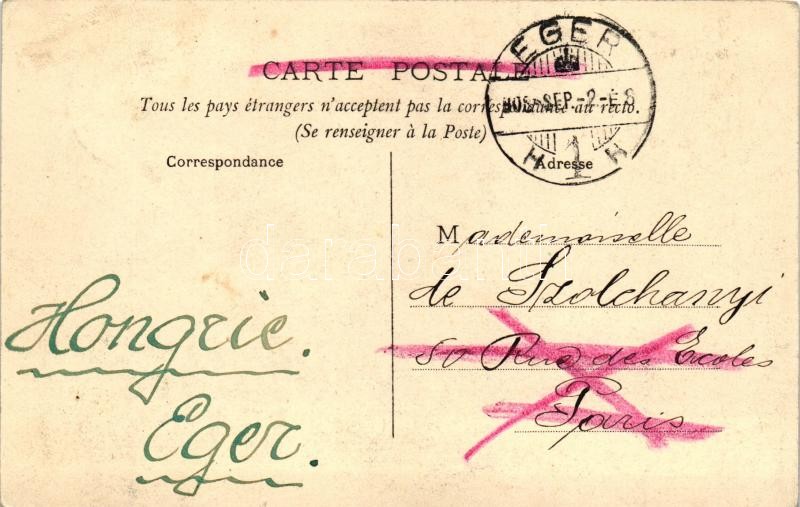 EGER
CARTE POSTALE
905 SEP.-2-E 8
Tous les pays étrangers n'acceptent pas la correspondance au recto.
(Se renseigner à la Poste)
1
Correspondance
Adresse
Mademoiselle
de Szolchanyi
50 Rue des Ecoles
Paris
Hongrie.
Eger.
darabanth